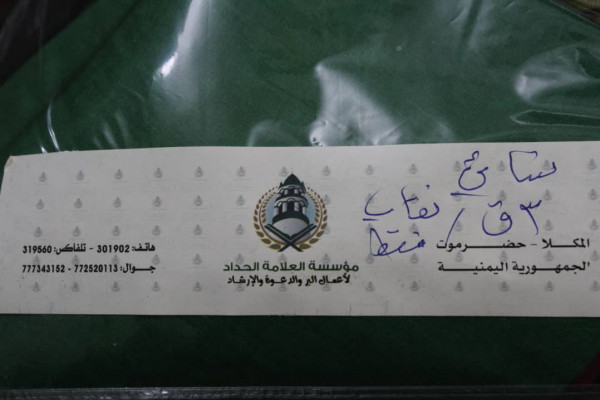 المكلا - حضرموت
الجمهورية اليمنية
مؤسسة العلامة الحداد
لأعمال البر والدعوة والإرشاد
هاتف: 301902 - تلفاكس: 319560
جوال: 772520113 - 777343152
٣ ق / فقط